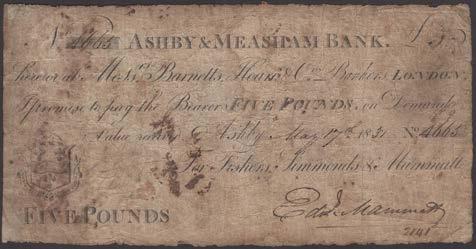 № 4665 ASHBY & MEASHAM BANK. £5
here or at Messrs. Barnetts, Hoare & Co. Bankers LONDON.
I promise to pay the Bearer FIVE POUNDS, on Demand
Value received Ashby May 17th 1831 No 4665
For Fishers, Simmonds & Mammatt.
Edwd. Mammatt
FIVE POUNDS
2141